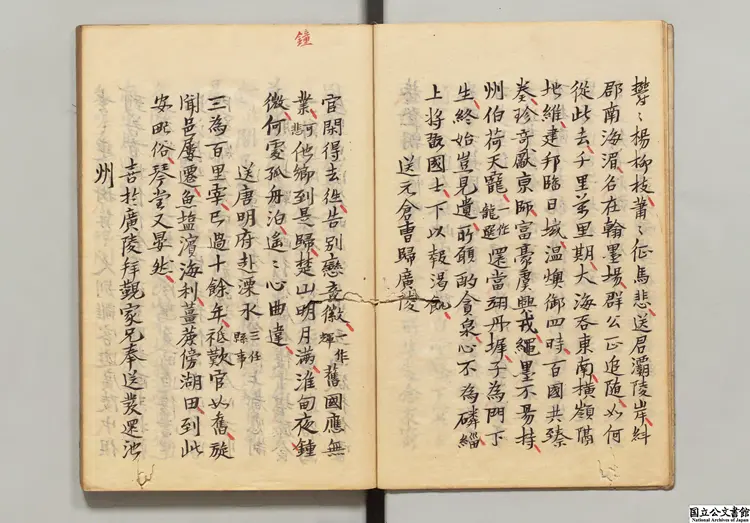 鬱〻楊柳枝蕭〻征馬悲送君灞陵岸糾
郡南海湄名在翰墨場群公正追隨如何
從此去千里萬里期大海吞東南橫嶺隔
地維建邦臨日域温燠御四時百國共臻
奏珍奇獻京師富豪虞興戎繩墨不易持
州伯荷天寵作龍選還當翊丹墀子為門下
生終始豈見遺所願酌貪泉心不為磷緇
上將翫國士下以報渴飢
送元倉曹歸廣陵
鐘
官閑得去住告別戀音徽一作輝舊國應無
業何他鄉到是歸楚山明月滿淮甸夜鐘
微何處孤舟泊遥〻心曲違
送唐明府赴溧水三任縣事
三為百里宰已過十餘年祗歎官如舊旋
聞邑屢遷魚塩濱海利薑蔗傍湖田到此
安甿俗琴堂又晏然
喜於廣陵拜覲家兄奉送發還池
州
国立公文書館
National Archives of Japan